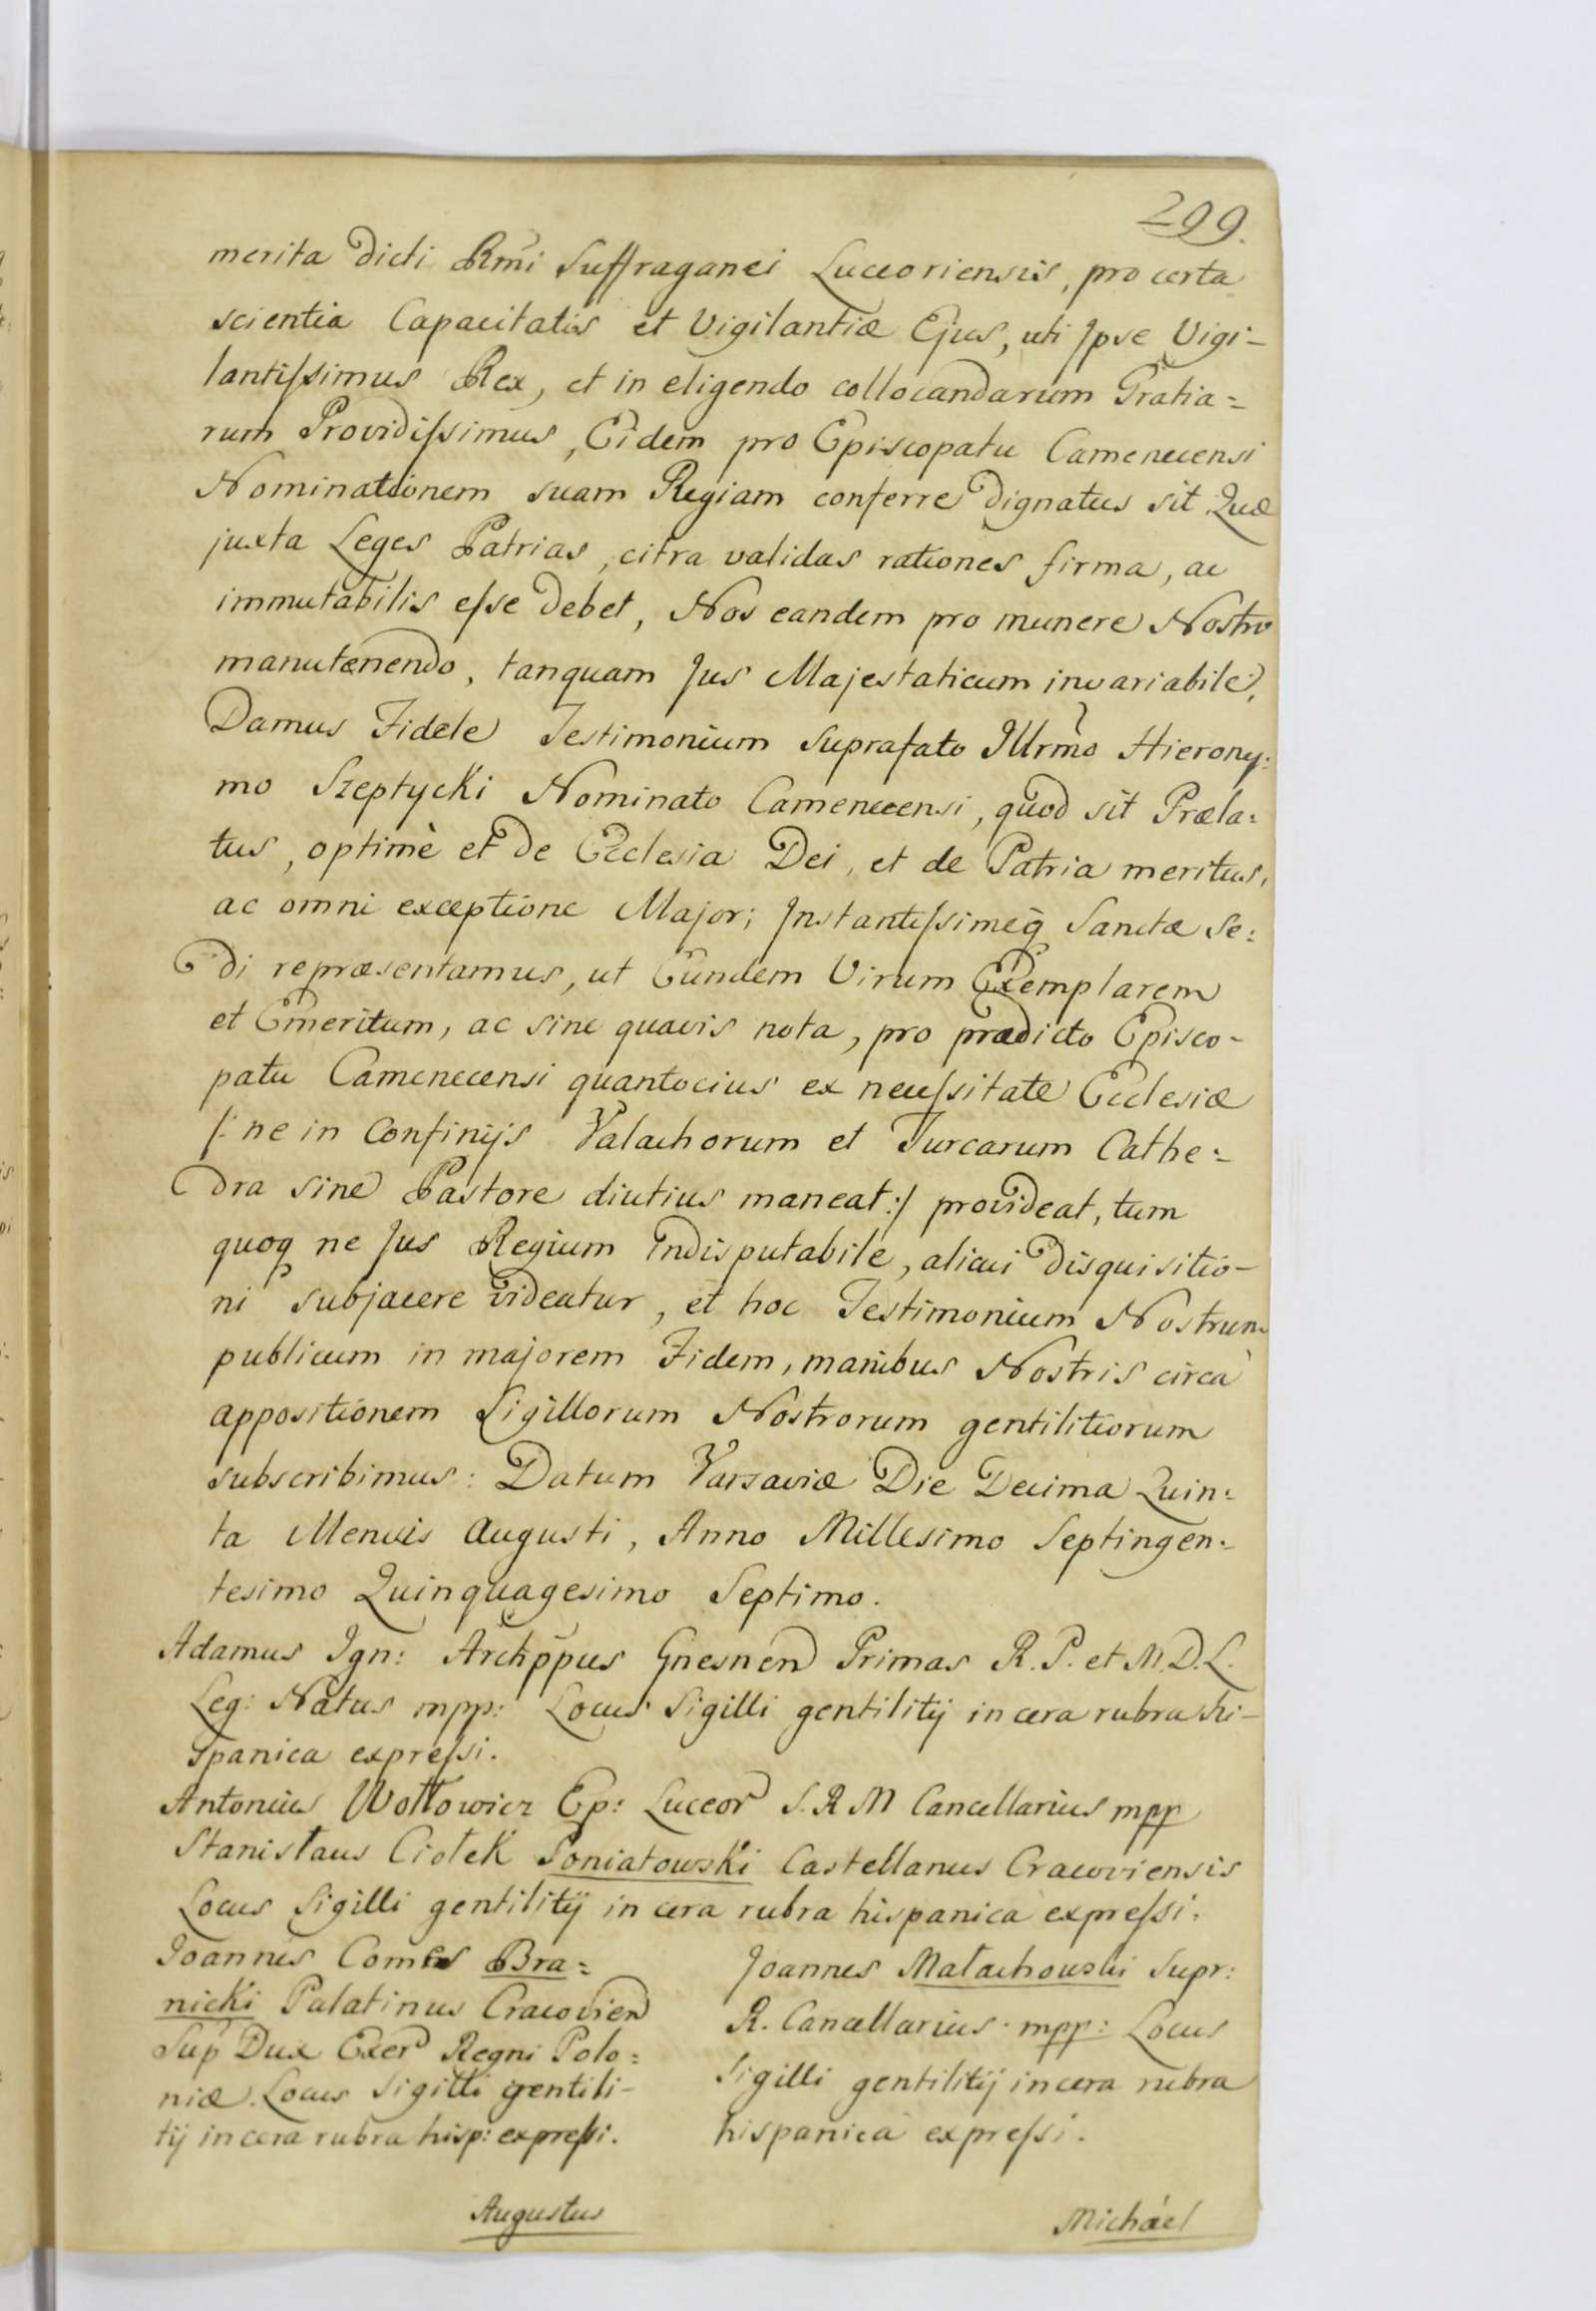 299.
merita dicti Rm̃i Suffraganei Luceoriensis, pro certa
scientia Capacitatis et Vigilantiæ Ejus, uti Ipse Vigi-
lantiſsimus Rex, et in eligendo collocandarum Gratia=
rum Providiſsimus, Eidem pro Episcopatu Camenecensi
Nominationem suam Regiam conferre dignatus sit. Quæ
juxta Leges Patrias, citra validas rationes firma, ac
immutabilis eſse debet, Nos eandem pro munere Nostro
manutenendo, tanquam Jus Majestaticum invariabile,
Damus Fidele Testimonium suprafato Illrm̃o Hierony:
mo Szeptycki Nominato Camenecensi, quod sit Præla:
tus, optimè et de Ecclesia Dei, et de Patria meritus,
ac omni exceptione Major; Instantiſsimeq̃ Sanctæ Se:
di repræsentamus, ut Eundem Virum Exemplarem
et Emeritum, ac sine quavis nota, pro prædicto Episco-
patu Camenecensi quantocius ex neceſsitate Ecclesiæ
/: ne in Confinijs Valachorum et Turcarum Cathe:
dra sine Pastore diutius maneat :/ provideat, tum
quoq ne Jus Regium indisputabile, alicui disquisitio-
ni subjacere videatur, et hoc Testimonium Nostrum
publicum in majorem Fidem, manibus Nostris circa
appositionem Sigillorum Nostrorum gentilitiorum
subscribimus: Datum Varsaviæ Die Decima Quin:
ta Mensis Augusti, Anno Millesimo Septingen:
tesimo Quinquagesimo Septimo.
Adamus Ign: Archp̃pus Gnesnen Primas R. P. et M. D. L.
Leg: Natus mpp: Locus Sigilli gentilitij in cera rubra hi-
spanica expreſsi.
Antonius Wołłowicz Ep: Luceor S. R M Cancellarius mpp
Stanisłaus Ciołek Poniatowski Castellanus Cracoviensis
Locus Sigilli gentilitij in cera rubra hispanica expreſsi.
Joannes Comes Bra:
nicki Palatinus Cracovien
Sup Dux Exer Regni Polo:
niæ. Locus Sigilli gentili-
tij in cera rubra hisp: expreſsi.
Joannes Małachowski Supr:
R. Cancellarius mpp: Locus
Sigilli gentilitij in cera rubra
hispanica expreſsi.
Augustus
Michael